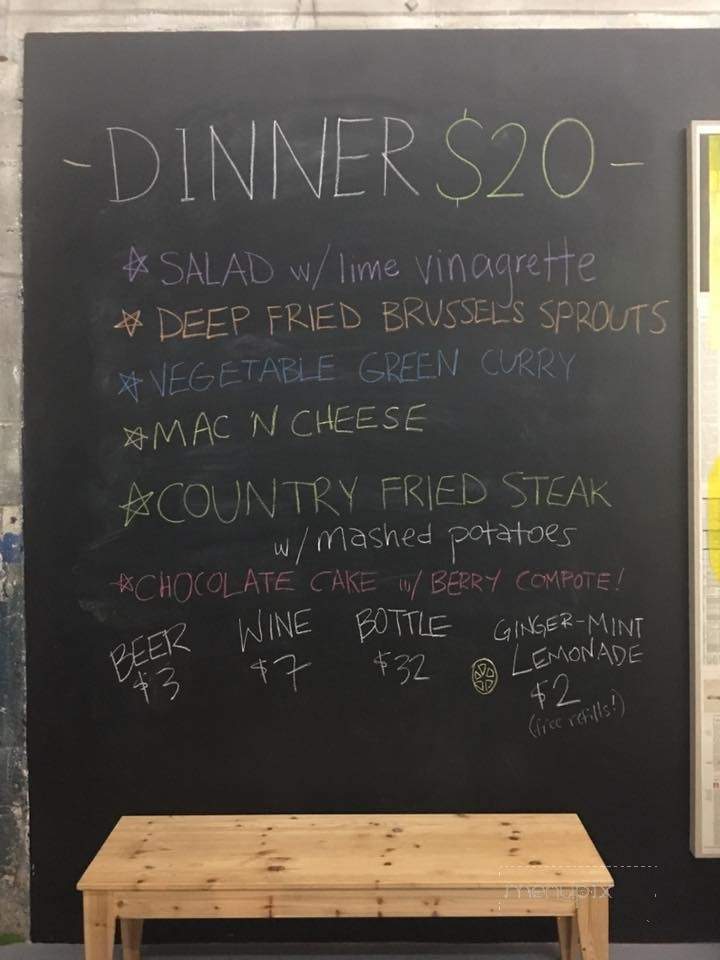 - DINNER $20 -
SALAD w/ lime vinagrette
DEEP FRIED BRUSSELS SPROUTS
VEGETABLE GREEN CURRY
MAC 'N CHEESE
COUNTRY FRIED STEAK
w/ mashed potatoes
CHOCOLATE CAKE w/ BERRY COMPOTE!
BEER
$3
WINE
$7
BOTTLE
$32
GINGER-MINT
LEMONADE
$2
(free refills!)
menupix